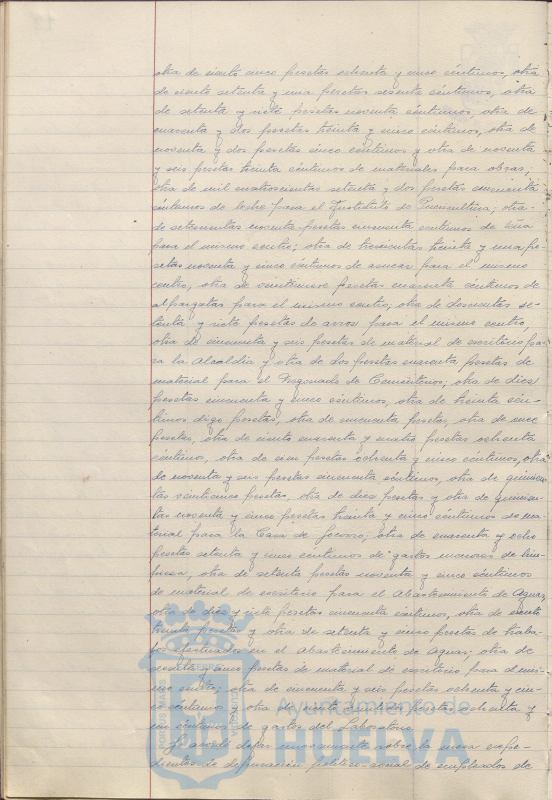 otra de ciento cinco pesetas ochenta y cinco céntimos, otra
de ciento setenta y una pesetas sesenta céntimos, otra
de setenta y siete pesetas noventa céntimos otra de
cuarenta y dos pesetas treinta y cinco céntimos, otra de
noventa y dos pesetas cinco céntimos y otra de noventa
y seis pesetas treinta céntimos de materiales para obras,
otra de mil cuatrocientas setenta y dos pesetas cincuenta
céntimos de leche para el Instituto de Puericultura; otra
de setecientas noventa pesetas cincuenta céntimos de
para el mismo centro; otra de trescientas treinta y una pe-
setas noventa y cinco céntimos de azucar para el mismo
centro, otra de veintinueve pesetas cuarenta céntimos de
alpargatas para el mismo centro; otra de doscientas se-
tenta y siete pesetas de arroz para el mismo centro,
otra de cincuenta y seis pesetas de material de escritorio pa-
ra la Alcaldia y otra de dos pesetas cuarenta pesetas de
material para el Negociado de Cementerios; otra de diez
pesetas cincuenta y cinco céntimos, otra de treinta cén-
timos digo pesetas, otra de cincuenta pesetas, otra de once
pesetas, otra de ciento cuarenta y cuatro pesetas ochenta
céntimos, otra de cien pesetas ochenta y cinco céntimos, otra
de noventa y seis pesetas cincuenta céntimos, otra de quinien-
tas veinticinco pesetas, otra de diez pesetas y otra de quinien-
tas noventa y cinco pesetas treinta y cinco céntimos de ma-
terial para la Casa de Socorro; otra de cuarenta y ocho
pesetas setenta y cinco céntimos de gastos menores de lim-
pieza, otra de setenta pesetas noventa y cinco céntimos
de material de escritorio para el Abastecimiento de Aguas,
otra de diez y siete pesetas cincuenta céntimos, otra de ciento
treinta pesetas y otra de setenta y cinco pesetas de traba-
jos efectuados en el Abastecimiento de Aguas; otra de
y cinco pesetas de material de escritorio para el mis-
mo otra de cincuenta y seis pesetas ochenta y cin-
co céntimos y otra de ciento pesetas ochenta y
céntimos de gastos del Laboratorio.
Se acordó dejar nuevamente sobre la mesa expe-
dientes de depuración politico-social de empleados de
Ayuntamiento de
HUELVA